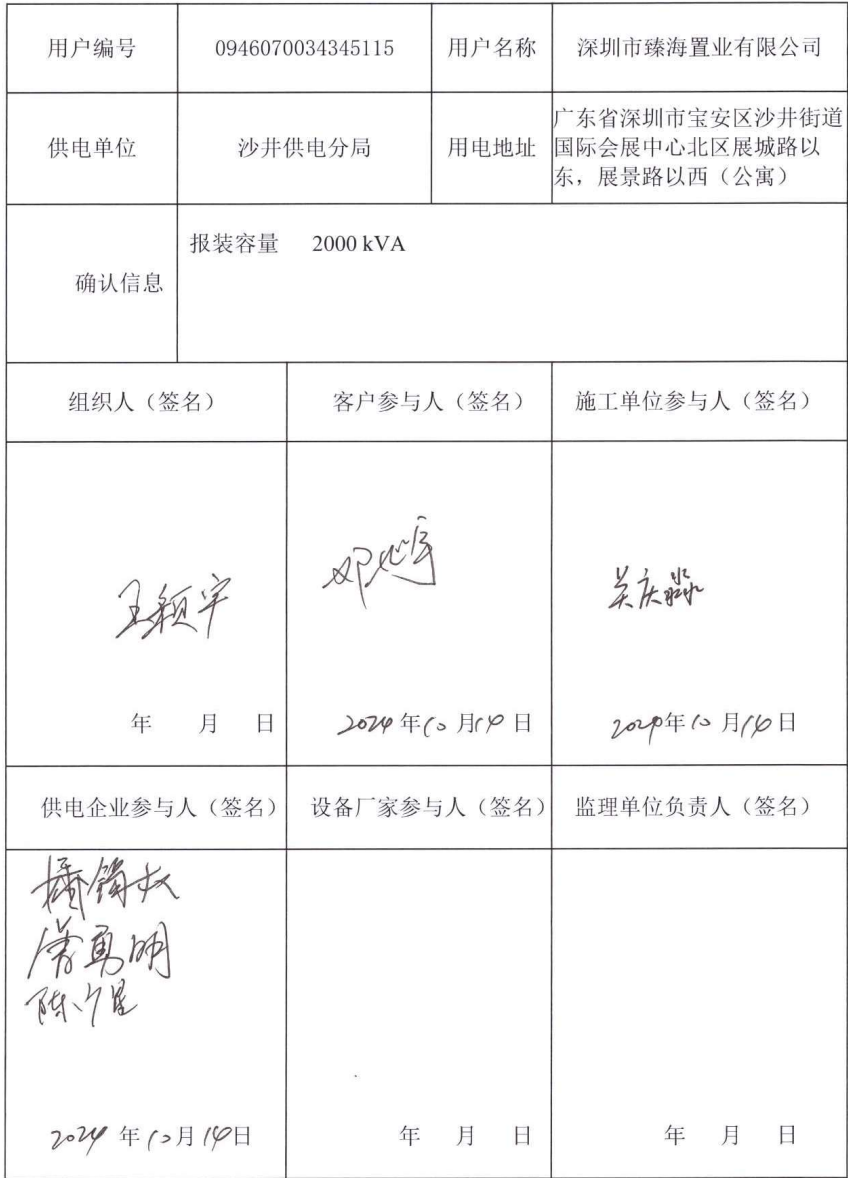 用户编号
0946070034345115
用户名称
深圳市臻海置业有限公司
供电单位
沙井供电分局
用电地址
广东省深圳市宝安区沙井街道
国际会展中心北区展城路以
东，展景路以西（公寓）
确认信息
报装容量 2000 kVA
组织人（签名）
客户参与人（签名）
施工单位参与人（签名）
王颖宇
吴庆淼
年 月 日
2024年10月14日
2024年10月14日
供电企业参与人（签名）
设备厂家参与人（签名）
监理单位负责人（签名）
勇明
2024年10月14日
年 月 日
年 月 日